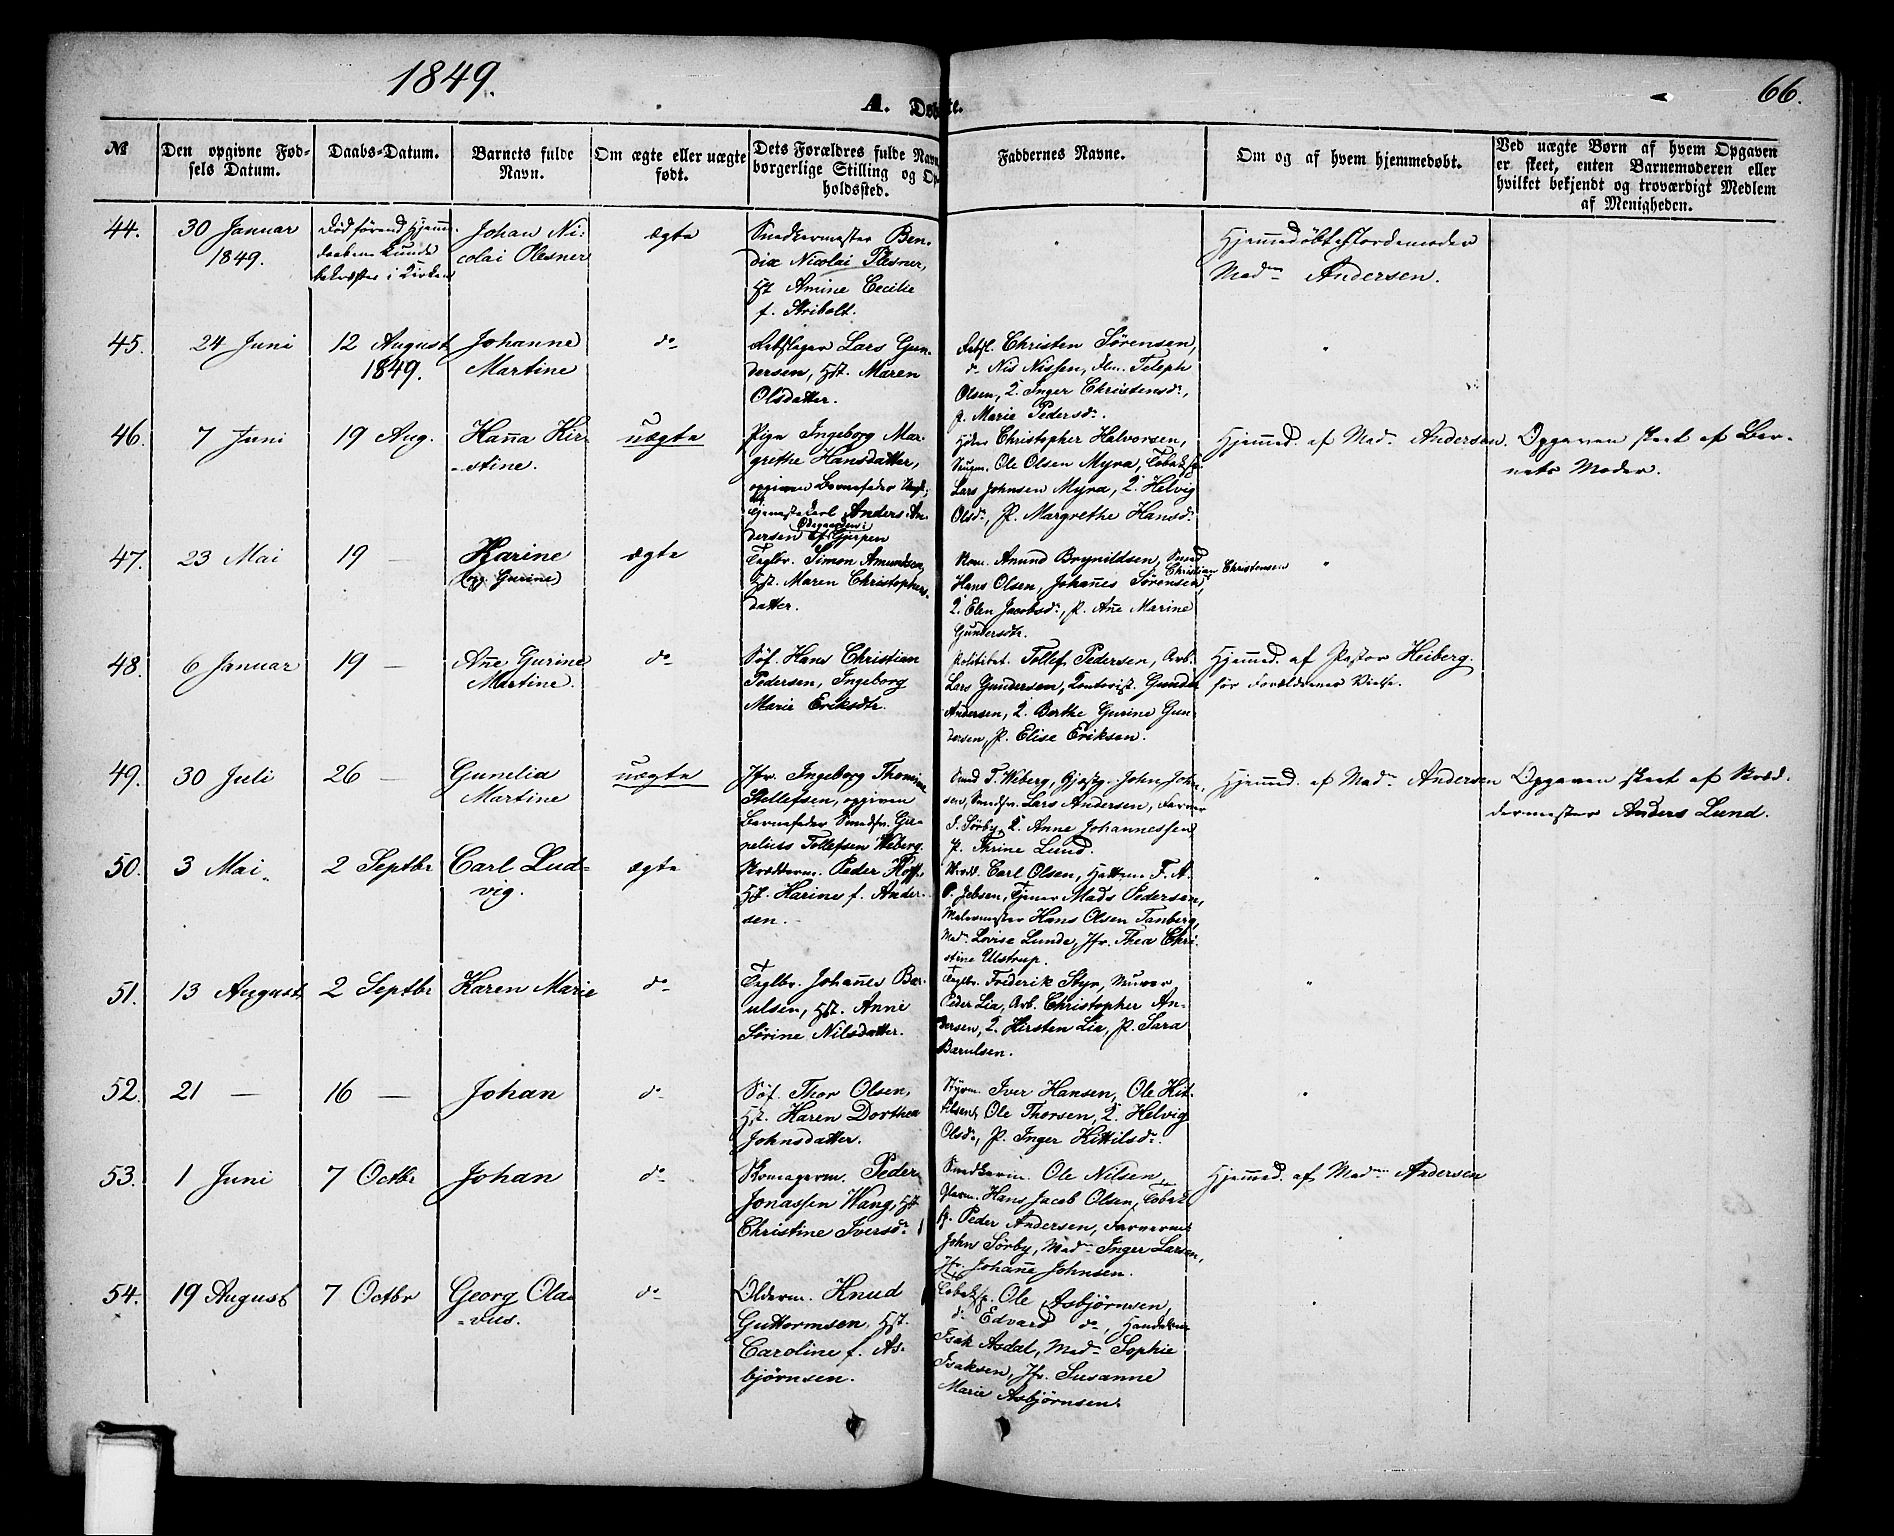 1849.
A. Døbte.
66.
№
Den opgivne Fødsels Datum.
Daabs-Datum.
Barnets fulde Navn.
Om ægte eller uægte født.
Dets Forældres fulde Navn, borgerlige Stilling og Opholdssted.
Faddernes Navne.
Om og af hvem hjemmedøbt.
Ved uægte Børn af hvem Opgaven er skeet, enten Barnemoderen eller hvilket bekjendt og troværdigt Medlem af Menigheden.
44.
30 Januar
1849.
Død førend Hjemme-
daaben kunde
bekræftes i Kirken
Johan Ni-
colai Plesner
ægte
Snedkermester Ben-
dix Nicolai Plesner,
Hst. Amine Cecilie
f. Stribolt.
Hjemmedøbt af Jordemoder
Madm Andersen.
45.
24 Juni
12 August
1849.
Johanne
Martine
do
Rebslager Lars Gun-
dersen, Hst. Maren
Olsdatter.
Rebsl. Christen Sørensen,
do Nis Nissen, Teleph
Olsen, Q. Inger Christensdr,
P. Marie Pedersdr.
46.
7 Juni
19 Aug.
Hanna Kir-
stine.
uægte
Pige Ingeborg Mar-
grethe Hansdatter,
opgiven Barnefader Ungk.
Tjenestekarl Anders An-
dersen af Gjerpen
Christopher Halvorsen,
Ole Olsen Myra,
Lars Johnsen Myra, Q. Helvig
Olsdr, P. Margrethe Hansdr.
Hjemmed. af Madm Andersen.
Opgaven skeet af Bar-
nets Moder.
47.
23 Mai
19 —
Karine
Gurine
ægte
Teglbr. Simon Amundsen,
Hst. Maren Christophers-
datter.
Amund Brynildsen, Smed Christian Christensen
Hans Olsen, Johannes Sørensen,
Q. Elen Jacobsdr, P. Ane Marine
Gundersdtr.
48.
6 Januar
19 —
Ane Gurine
Martine.
do
Søf. Hans Christian
Pedersen, Ingeborg
Marie Eriksdtr.
Politibet. Tollef Pedersen, Arb.
Lars Gundersen, Kontorist. Gunder
Andersen, Q. Berthe Gurine Gun-
dersen, P. Elise Eriksen.
Hjemmed. af Pastor Heiberg
før Forældrenes Vielse.
49.
30 Juli
26 —
Gunelia
Martine
uægte
Jfr. Ingeborg Thomine
Stellefsen, opgiven
Barnefader Smedsv. Cor-
nelius Tollefsen Weberg.
Smed T. Weberg, Gjæstg. John John-
sen, Smedsv. Lars Andersen, Farver
J. Sørby, Q. Anne Johannessen,
P. Thrine Lund.
Hjemmed. af Madm Andersen
Opgaven skeet af Skræd-
dermester Anders Lund.
50.
3 Mai
2 Septbr
Carl Lud-
vig.
ægte
Skrædderm. Peder Hoff,
Hst. Karine f. Ander-
sen.
Skrædd. Carl Olsen, Hattem. F. A.
P. Jebsen, Tjener Mads Pedersen,
Malermester Hans Olsen Tanberg,
Madm Lovise Lunde, Jfr. Thea Chri-
stine Ulstrup.
51.
13 August
2 Septbr
Karen Marie
do
Teglbr. Johannes Bæ-
rulsen, Hst. Anne
Sørine Nilsdatter.
Teglbr. Frederik Styr, Murer
Peder Lia, Arb. Christopher An-
dersen, Q. Kirsten Lie, P. Sara
Bærulsen.
52.
21 —
16 —
Johan
do
Søf. Thor Olsen,
Hst. Karen Dorthea
Johnsdatter.
Styrm. Iver Hansen, Ole Kit-
tilsen, Ole Thorsen, Q. Helvig
Olsdr, P. Inger Kittilsdr.
53.
1 Juni
7 Octbr
Johan
do
Skomagerm. Peder
Jonassen Wang, Hst
Christine Iversdr
Snedkerm. Ole Nilsen,
Hans Jacob Olsen, Tobak-
sp. Peder Andersen, Farverm.
John Sørby, Madm Inger Larsen,
Jfr. Johanne Johnsen.
Hjemmed. af Madm Andersen
54.
19 August
7 Octbr
Georg Ola-
vus.
do
Olderm. Knud
Guttormsen, Hst.
Caroline f. As-
bjørnsen.
Tobaksp. Ole Asbjørnsen,
do Edvard do, Handelsm.
Isak Asdal, Madm Sophie
Isaksen, Jfr. Susanne
Marie Asbjørnsen.